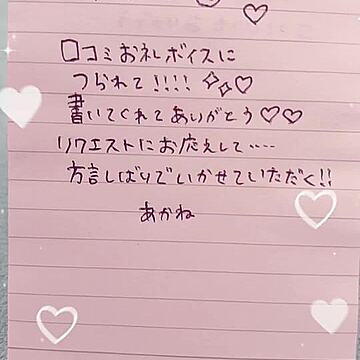 口コミお礼ボイスに
つられて!!!! ✧✧♡
書いてくれてありがとう♡♡
リクエストにお応えして‥‥
方言しばりでいかせていただく!!
あかね